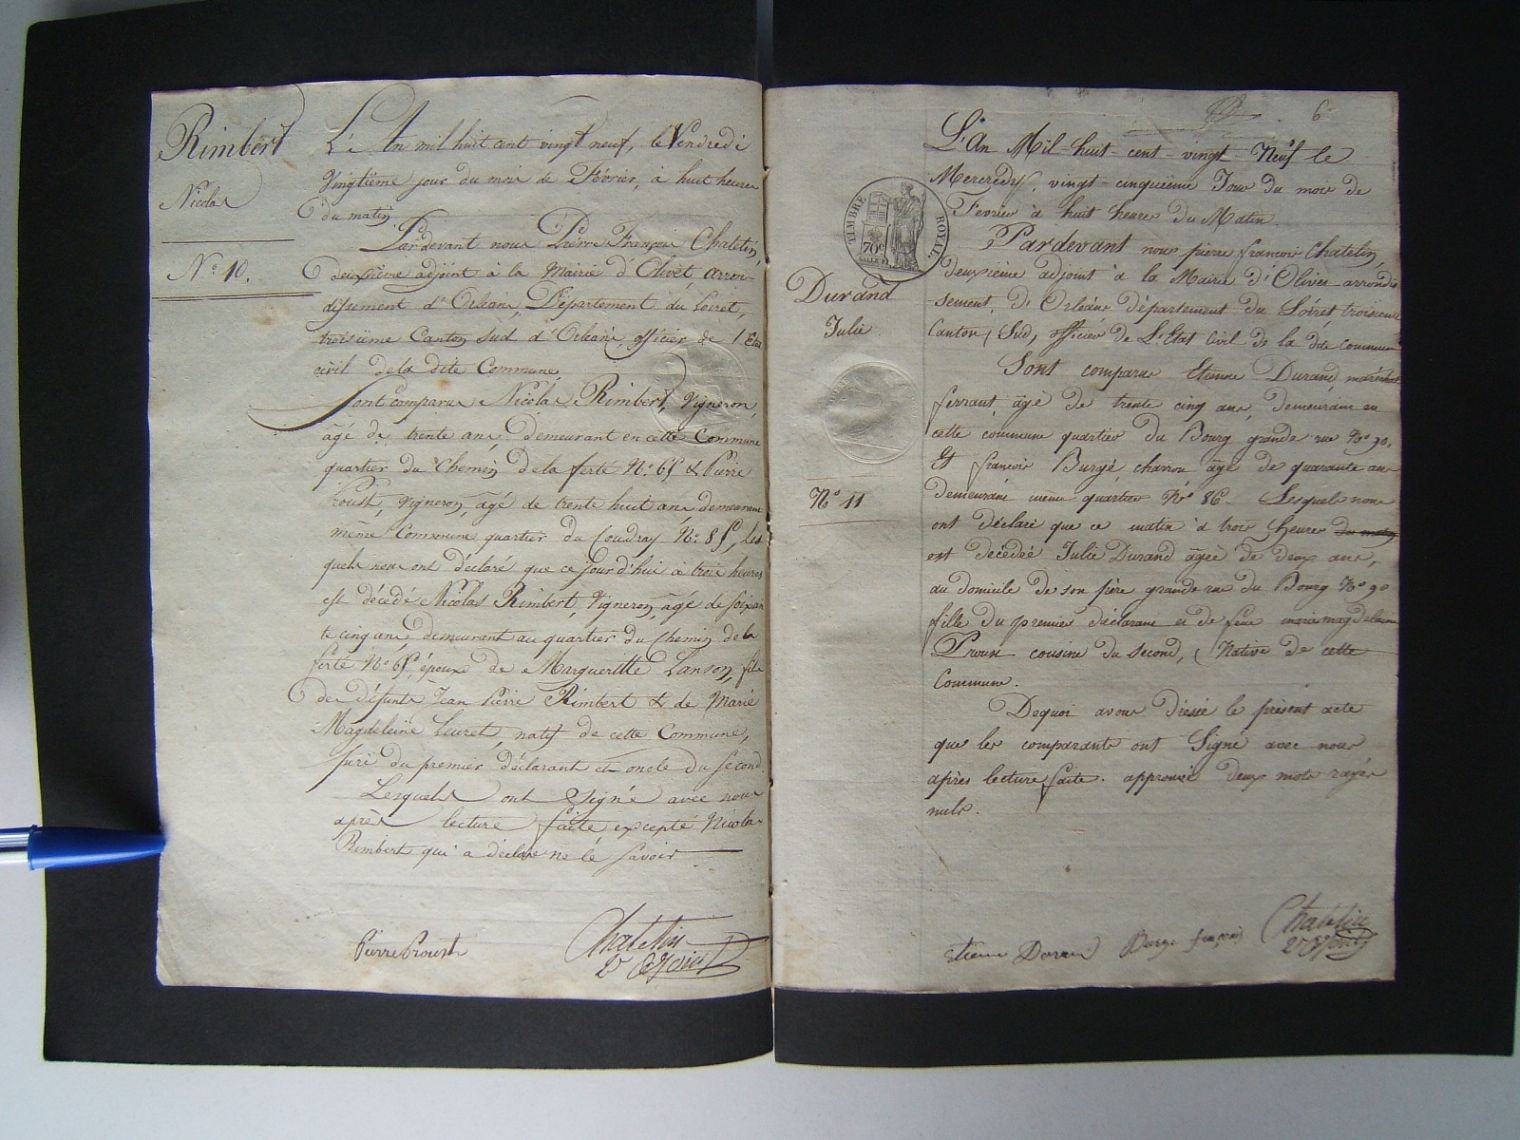 Rimbert
Nicolas
N° 10.
L'An mil huit cent vingt neuf, le Vendredi
Vingtième jour du mois de Février, à huit heures
du matin
Pardevant nous Pierre François Chatelin,
deuxième adjoint à la Mairie d'Olivet, arron-
dissement d'Orléans, Département du Loiret,
troisième Canton Sud d'Orléans, officier de l'Etat
civil de la dite Commune,
Sont comparus Nicolas Rimbert, Vigneron,
âgé de trente ans demeurant en cette Commune
quartier du Chemin de la ferté N° 65 & Pierre
Proust, Vigneron, âgé de trente huit ans demeurant
même Commune quartier du Coudray N° 85, Les
quels nous ont déclaré que ce jourd'hui à trois heures
est décédé Nicolas Rimbert, Vigneron, âgé de soixan
te cinq ans demeurant au quartier du Chemin de la
ferté N° 65, époux de Margueritte Lanson, fils
des défunts Jean Pierre Rimbert & de Marie
Magdeleine natif de cette Commune,
père du premier déclarant et oncle du second.
Lesquels ont signé avec nous
après lecture faite, excepté Nicolas
Rimbert qui a déclaré ne le savoir
Pierre Proust
Chatelin
2e adjoint
6
TIMBRE ROYAL
70c
Durand
Julie
N° 11
L'An Mil-huit-cent-vingt-Neuf le
Mercredy, vingt-cinquième Jour du mois de
Fevrier à huit heures du Matin
Pardevant nous pierre françois Chatelin,
deuxième adjoint à la Mairie d'Olivet arrondis
sement, d'Orléans département du Loiret troisieme
Canton, Sud, officier de L'Etat Civil de la dite commune
Sont comparus Etienne Durand maréchal
ferrant, âgé de trente cinq ans, demeurant en
cette commune quartier du Bourg grande rue N° 90,
Et françois Burgé charron âgé de quarante ans
demeurant même quartier N° 86. Lesquels nous
ont déclaré que ce matin à trois heures du matin
est décédée Julie Durand âgée de deux ans,
au domicile de son père grande rue du Bourg N° 90
fille du premier déclarant et de feue marie magdeleine
Proust cousine du second, Native de cette
Commune.
Dequoi avons dressé le présent acte
que les comparants ont Signé avec nous
après lecture faite. approuvé deux mots rayés
nuls.
Etienne Durand
Burgé françois
Chatelin
2e adjoint